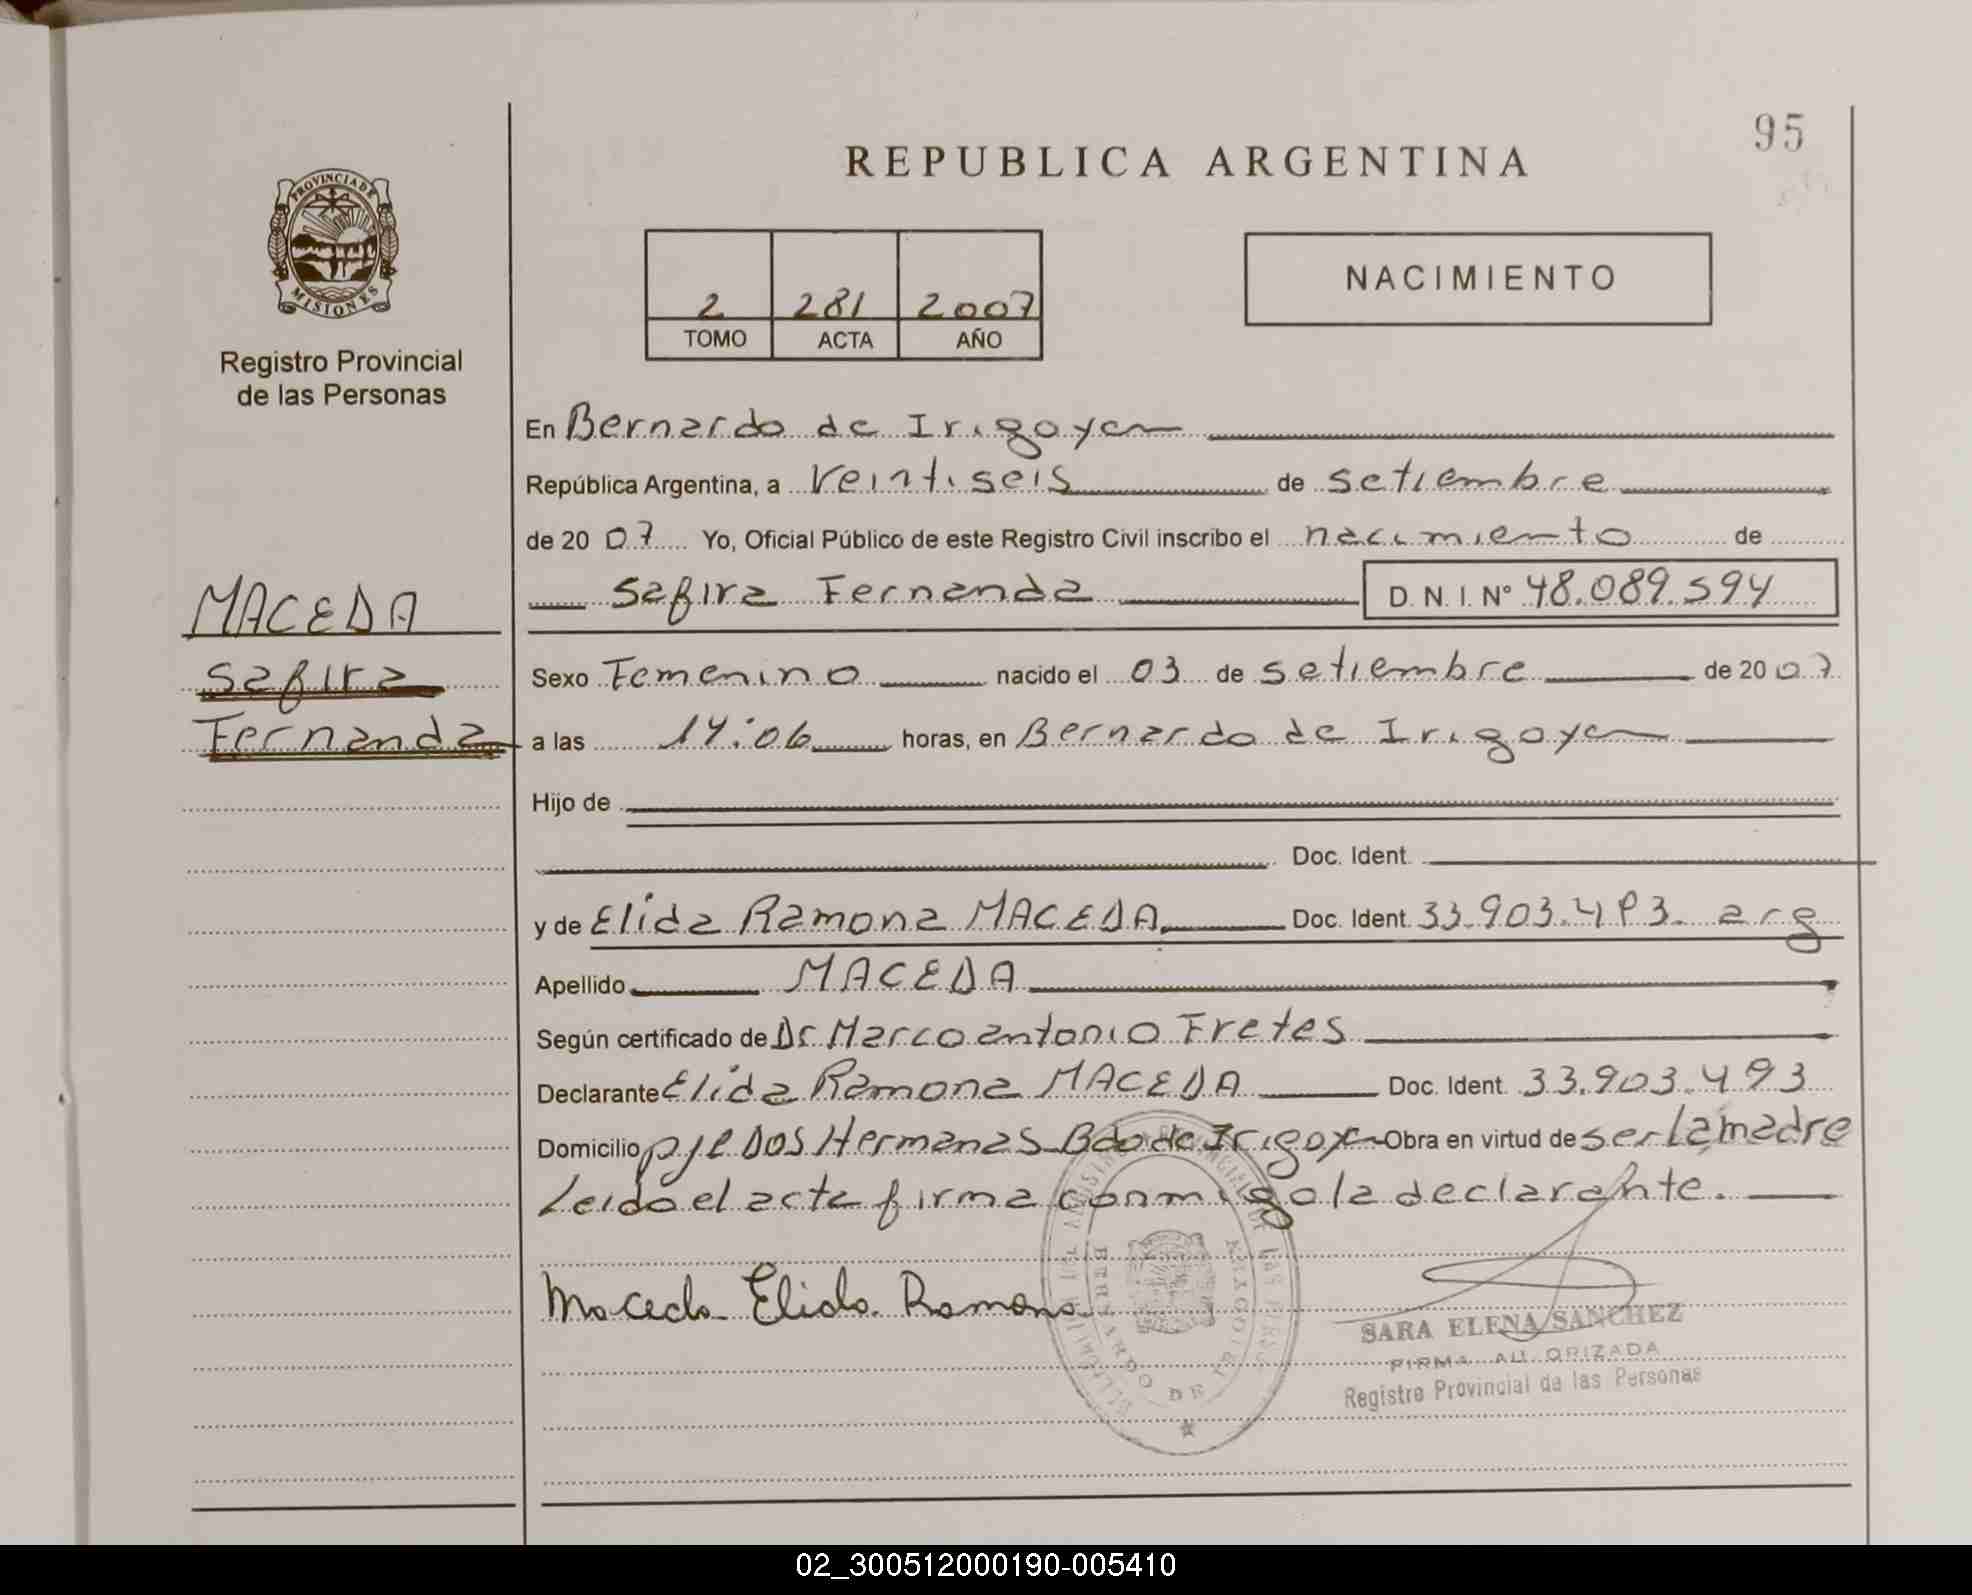 95
REPUBLICA ARGENTINA
PROVINCIA DE
MISIONES
Registro Provincial
de las Personas
2 281 2007
TOMO ACTA AÑO
NACIMIENTO
En Bernardo de Irigoyen
República Argentina, a veintiseis de setiembre
de 20 07 Yo, Oficial Público de este Registro Civil inscribo el nacimiento de
Safira Fernanda D. N. I. Nº 48.089.594
MACEDA
Safira
Fernanda
Sexo Femenino nacido el 03 de setiembre de 20 07
a las 14:06 horas, en Bernardo de Irigoyen
Hijo de
Doc. Ident.
y de Elida Ramona MACEDA Doc. Ident. 33.903.493. arg
Apellido MACEDA
Según certificado de Dr. Marco antonio Fretes
Declarante Elida Ramona MACEDA Doc. Ident. 33.903.493
Domicilio pje Dos Hermanas Bdo de Irigoyen Obra en virtud de ser la madre
Leido el acta firma conmigo la declarante.
Maceda Elida Ramona
SARA ELENA SANCHEZ
FIRMA AUTORIZADA
Registro Provincial de las Personas
BERNARDO DE IRIGOYEN
02_300512000190-005410